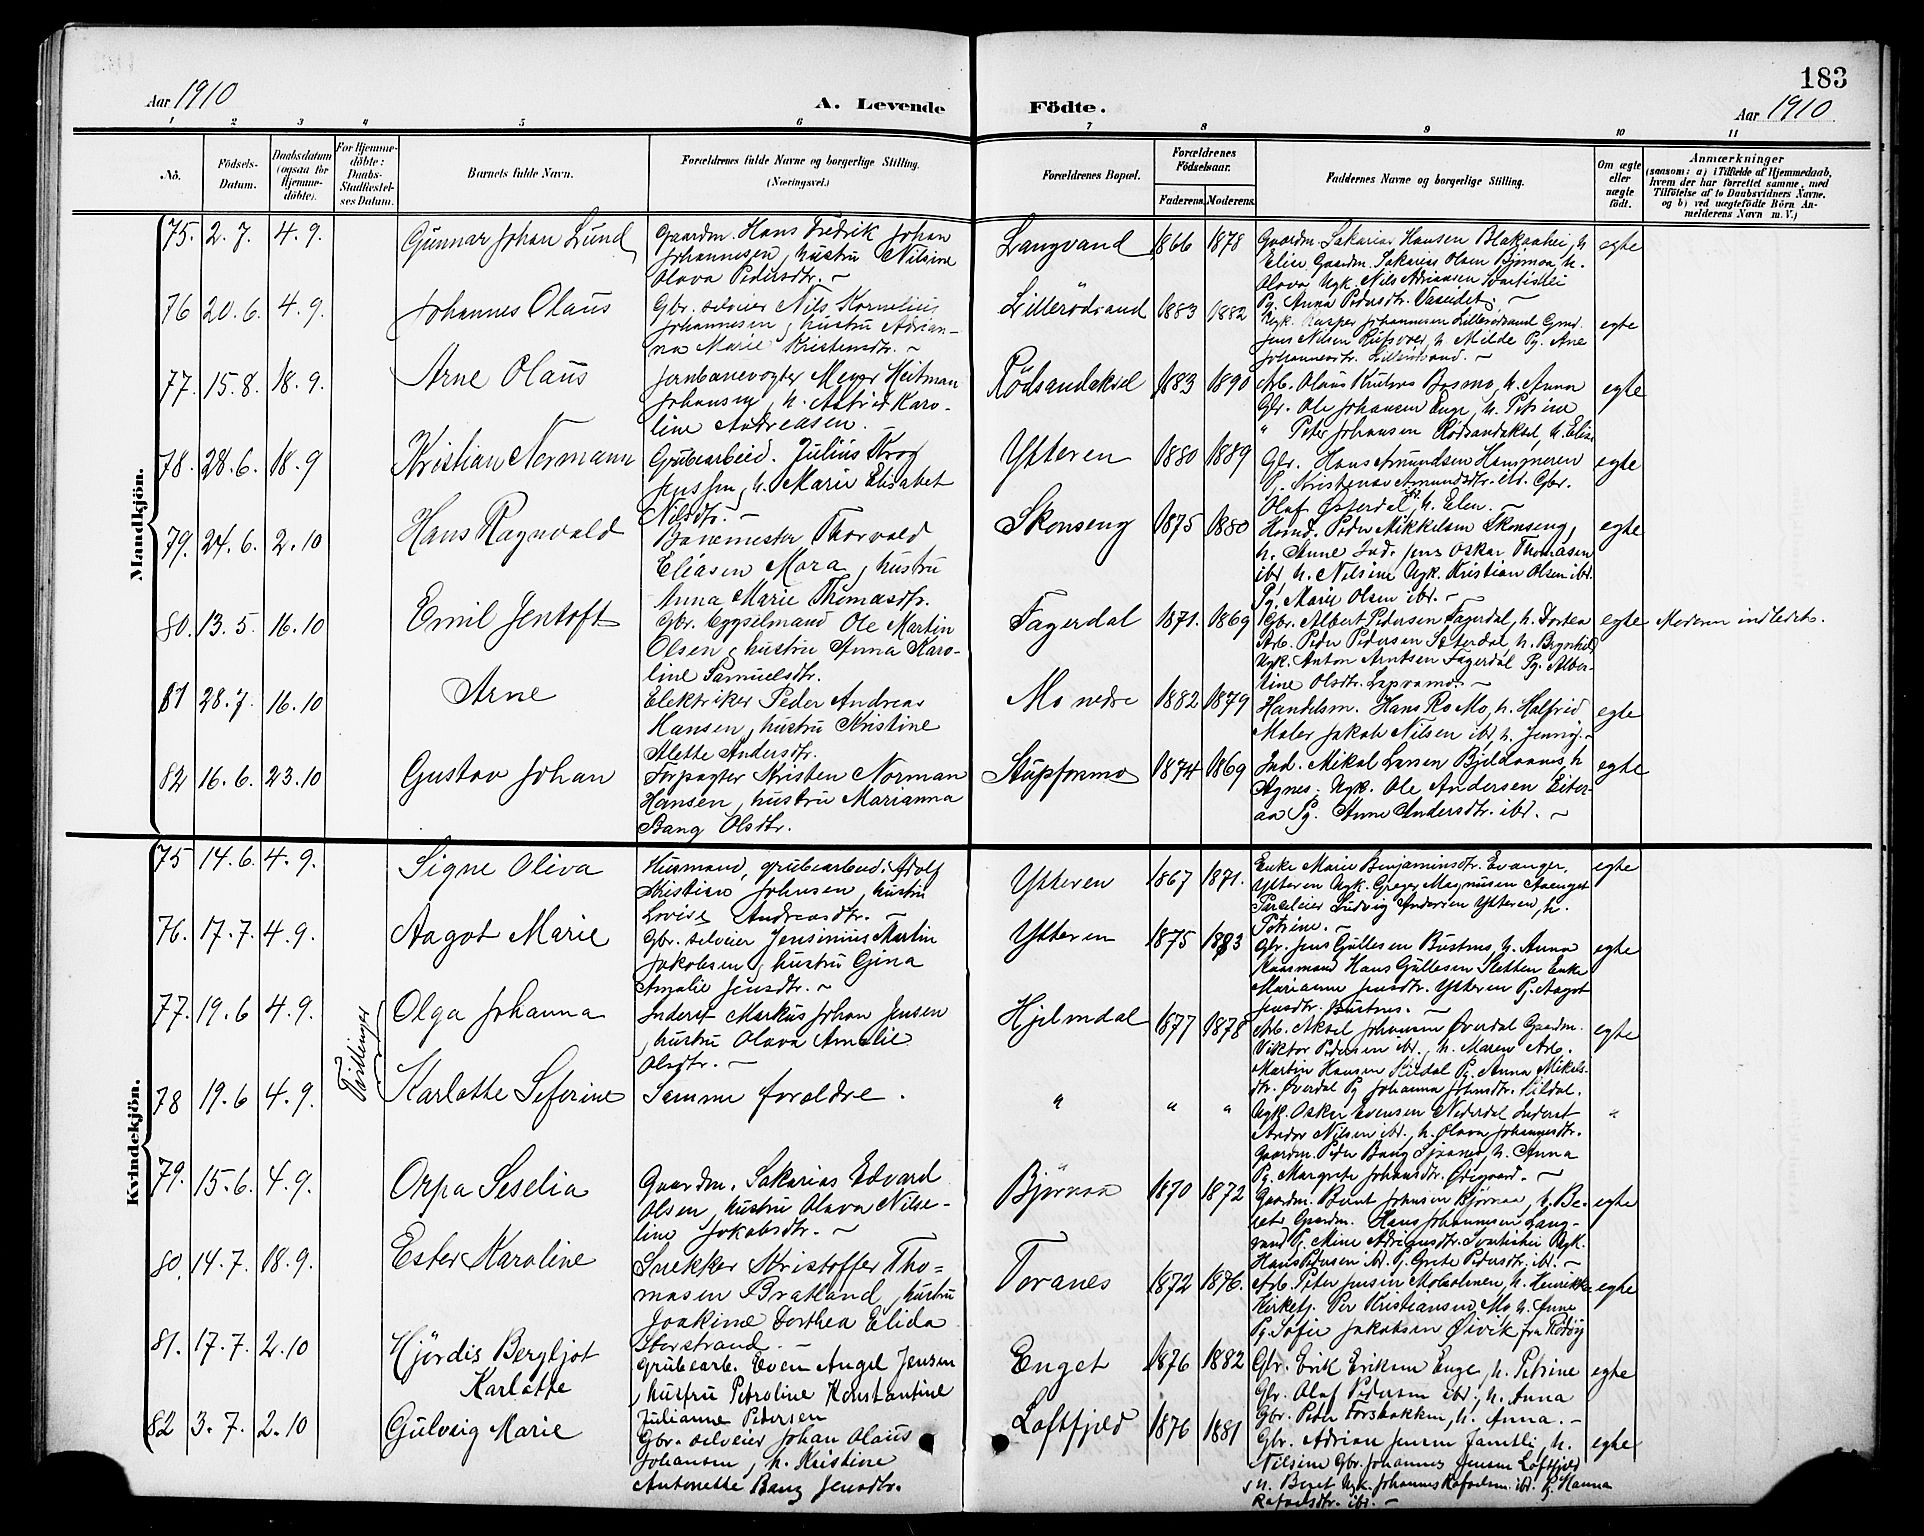 183
Aar 1910
A. Levende Födte.
Aar 1910
1 2 3 4 5 6 7 8 9 10 11
No.
Födsels-Datum.
Daabsdatum (ogsaa for Hjemmedöbte).
For Hjemmedöbte: Daabs-Stadfæstelses Datum.
Barnets fulde Navn.
Forældrenes fulde Navne og borgerlige Stilling. (Næringsvei.)
Forældrenes Bopæl.
Forældrenes Födselsaar.
Faderens. Moderens.
Faddernes Navne og borgerlige Stilling.
Om ægte eller uægte födt.
Anmærkninger
(saasom: a) i Tilfælde af Hjemmedaab, hvem der har forrettet samme, med Tilföielse af to Daabsvidners Navne, og b) ved uægtefödte Börn Anmelderens Navn m. V.)
Mandkjön.
75. 2. 7. 4. 9. Gunnar Johan Lund
Gaardm. Hans Fredrik Johan
Johannesen, hustru Nilsine
Olava Pedersdtr. –
Langvand 1866 1878
Gaardm. Sakarias Hansen Blakaahei, h.
Elise Gaardm. Sakarias Olsen Bjørnaa h.
Olava Ugk. Nils Adriansen Svartishei
Pg. Anna Pedersdtr. Vaseidet. –
egte
76 20. 6. 4. 9. Johannes Olaus
Gbr. selveier Nils Kornelius
Johannesen, hustru Adrian-
na Marie Kristensdtr. –
Lillerödvand 1883 1882
Ugk. Kasper Johannesen Lillerödvand Gmd.
Jens Nilsen h. Milde Pg. Ane
egte
77. 15. 8. 18. 9. Arne Olaus
Jernbanevogter Meyer Heitman
Johansen, h. Astrid Karo-
line Andreasen.
Rödsandaksel 1883 1890
Arb. Olaus Knutsen Bosmo, h. Anna
Gbr. Ole Johansen Enge, h. Petrine
" Peter Johansen Rödsandaksel, h. Elise
egte
78. 28. 6. 18. 9 Kristian Normann
Grubearbeid. Julius Krog
Jenssen, h. Marie Elisabet
Nilsdtr. –
Ytteren 1880 1889
Gbr. Hans Amundsen Hammeren
Pg. Amundsdtr. ibd. Gbr.
Olaf Østerdal, h. Elen. –
egte
79. 24. 6. 2. 10 Hans Ragnvald
Banemester Thorvald
Eliasen Mora, hustru
Anna Marie Thomasdtr.
Skonseng 1875 1880
Husmd. Peder Mikkelsen Skonseng,
h. Anne Ind. Jens Oskar Thomasen
ibd, h. Nilsine Ugk. Kristian Olsen ibd.
Pg. Marie Olsen ibd. –
egte
80. 13. 5. 16. 10 Emil Jentoft
Gbr. Ole Martin
Olsen, hustru Anna Karo-
line Samuelsdtr.
Fagerdal 1871. 1869
Gbr. Albert Pedersen Fagerdal, h. Dortea
Arb. Peder Pedersen Seterdal h.
Ugk. Anton Arntsen Fagerdal Pg. Alber-
tine Olsdtr. –
egte Moderen indledet.
81 28. 7. 16. 10 Arne
Elektriker Peder Andreas
Hansen, hustru Kristine
Alette Andersdtr.
Mo nedre 1882 1879
Handelsm. Hans Ro Mo, h. Halfrid
Maler Jakob Nilsen ibd, h. Jenny. –
egte
82 16. 6. 23. 10 Gustav Johan
Forpagter Kristen Norman
Hansen, hustru Marianna
Bang Olsdtr.
Stupforsmo 1874 1869
Ind. Mikal Larsen Bjeldaanes, h
Agnes. Ugk. Ole Andersen Eiter-
aa Pg. Anne Andersdtr. ibd. –
egte
Kvindekjön.
75 14. 6. 4. 9. Signe Oliva
Husmand, grubearbeid. Adolf
Kristian Johnsen, hustru
Lovise Andreasdtr. –
Ytteren 1867 1871.
Enke Marie Benjaminsdtr. Evanger,
Ytteren Ugk. Greger Magnusen Aaenget
Parceleier Ludvig Andersen Ytteren, h.
Petrine. –
egte
76. 17. 7. 4. 9. Aagot Marie
Gbr. selveier Jensinius Martin
Jakobsen, hustru Gjena
Amalie Jensdtr. –
Ytteren 1875 1883
Gbr. Jens Gullesen Bustnes, h. Anna
Hans Gullesen Sletten Enke
Marianne Jensdtr. Ytteren Pg. Aagot
Jensdtr. Bustnes. –
egte
77. 19. 6 4. 9. Tvillinger Olga Johanna
Inderst Markus Johan Jensen
, hustru Olava Amalie
Olsdtr. –
Hjelmdal 1877 1878
Arb. Aksel Johansen Øverdal Gaardm.
Viktor Pedersen ibd., h. Maren Arb.
Martin Hansen Kildal Pg. Anna Mikels-
dtr. Øverdal Pg Johanna Johnsdtr. Kildal.
egte
78 19. 6 4. 9. Karlotte Seferine
Samme foraldre.
" " "
Ugk. Oskar Evensen Nederdal Inderst
Andor Nilsen ibd., h. Olava Johannesdtr.
Gaardm. Peder Bang h. Anna
Pg. Margrete Johansdtr. –
"
79. 15. 6. 4. 9. Orpa Seselia
Gaardm. Sakarias Edvard
Olsen, hustru Olava Nilse-
line Jakobsdtr. –
Bjørnaa 1870 1872
Gaardm. Bernt Johnsen Bjørnaa, h. Be-
rete Gaardm. Hans Johannesen Lang-
vand Pg. Mine Adriansdtr. Svartishei Ugk.
Hans Pedersen ibd. Pg. Grete Pedersdtr. ibd. –
egte
80. 14. 7. 18. 9. Ester Karoline
Snekker Kristoffer Tho-
masen Bratland, hustru
Joakime Dorthea Elida
Storstrand. –
Toranes 1872 1876.
Arb. Peter Jensen Moholmen, h. Henrikke
Kirketj. Per Kristiansen Mo h. Anne
Pg. Sofie Jakobsen Øivik fra Rödöy
egte
81. 17. 7. 2. 10 Hjördis Bergljot
Karlotte
grubearb. Even Angel Jensen
, hustru Petroline Konstantine
Julianne Pedersen
Enget 1876 1882
Gbr. Erik Eriksen Enge, h. Petrine
Gbr. Olaf Pedersen ibd., h. Anna
Gbr. Peder Forsbakken, h. Anna. –
egte
82 3. 7. 2. 10 Gulveig Marie
Gbr. selveier Johan Olaus
Johansen, h. Kristine
Antonette Bang Jensdtr.
Loftfjeld 1876 1881
Gbr. Adrian Jensen Jamtli, h.
Nilsine Gbr. Johannes Jensen Loftfjeld
, h. Beret Ugk. Johannes Rafaelsen ibd. Pg. Hanna
Rafaelsdtr. ibd. –
egte